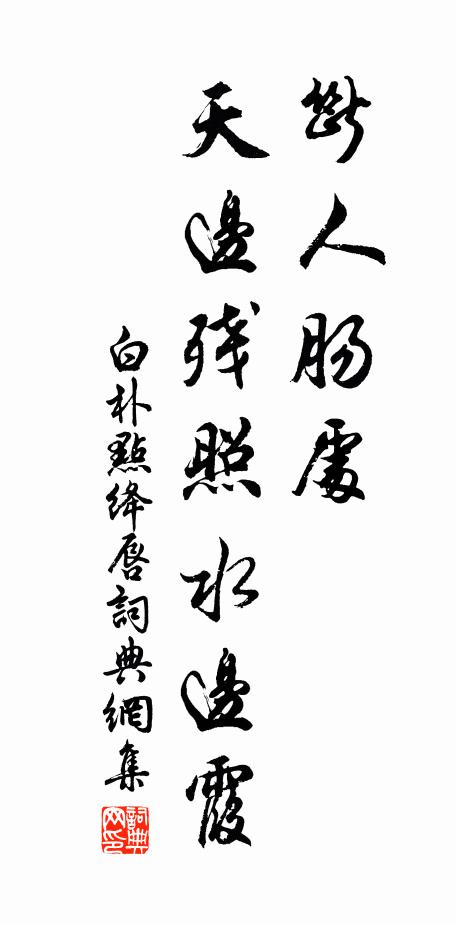 斷人腸處
天邊殘照水邊霞
白朴點絳唇詞典網集
詞典網印